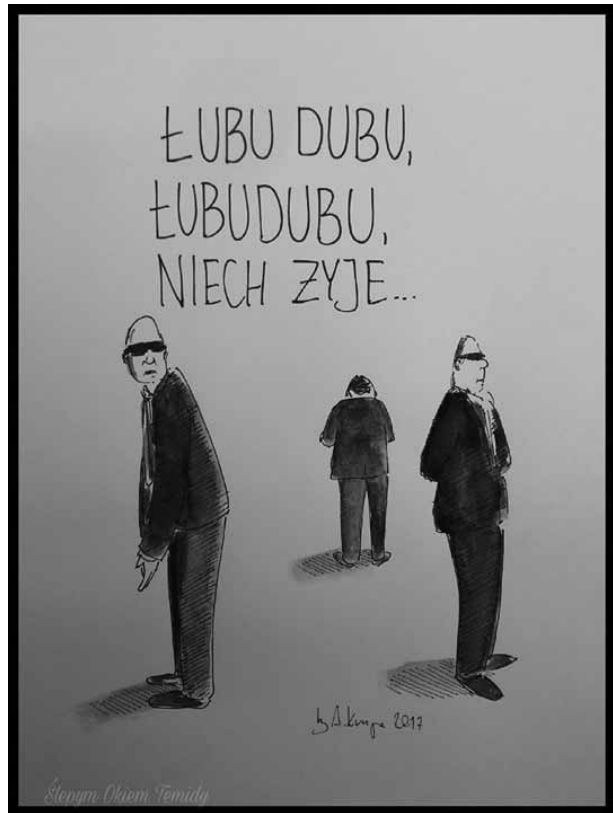 ŁUBU DUBU,
ŁUBUDUBU,
NIECH ŻYJE...
by A. 2017
Ślepym Okiem Temidy